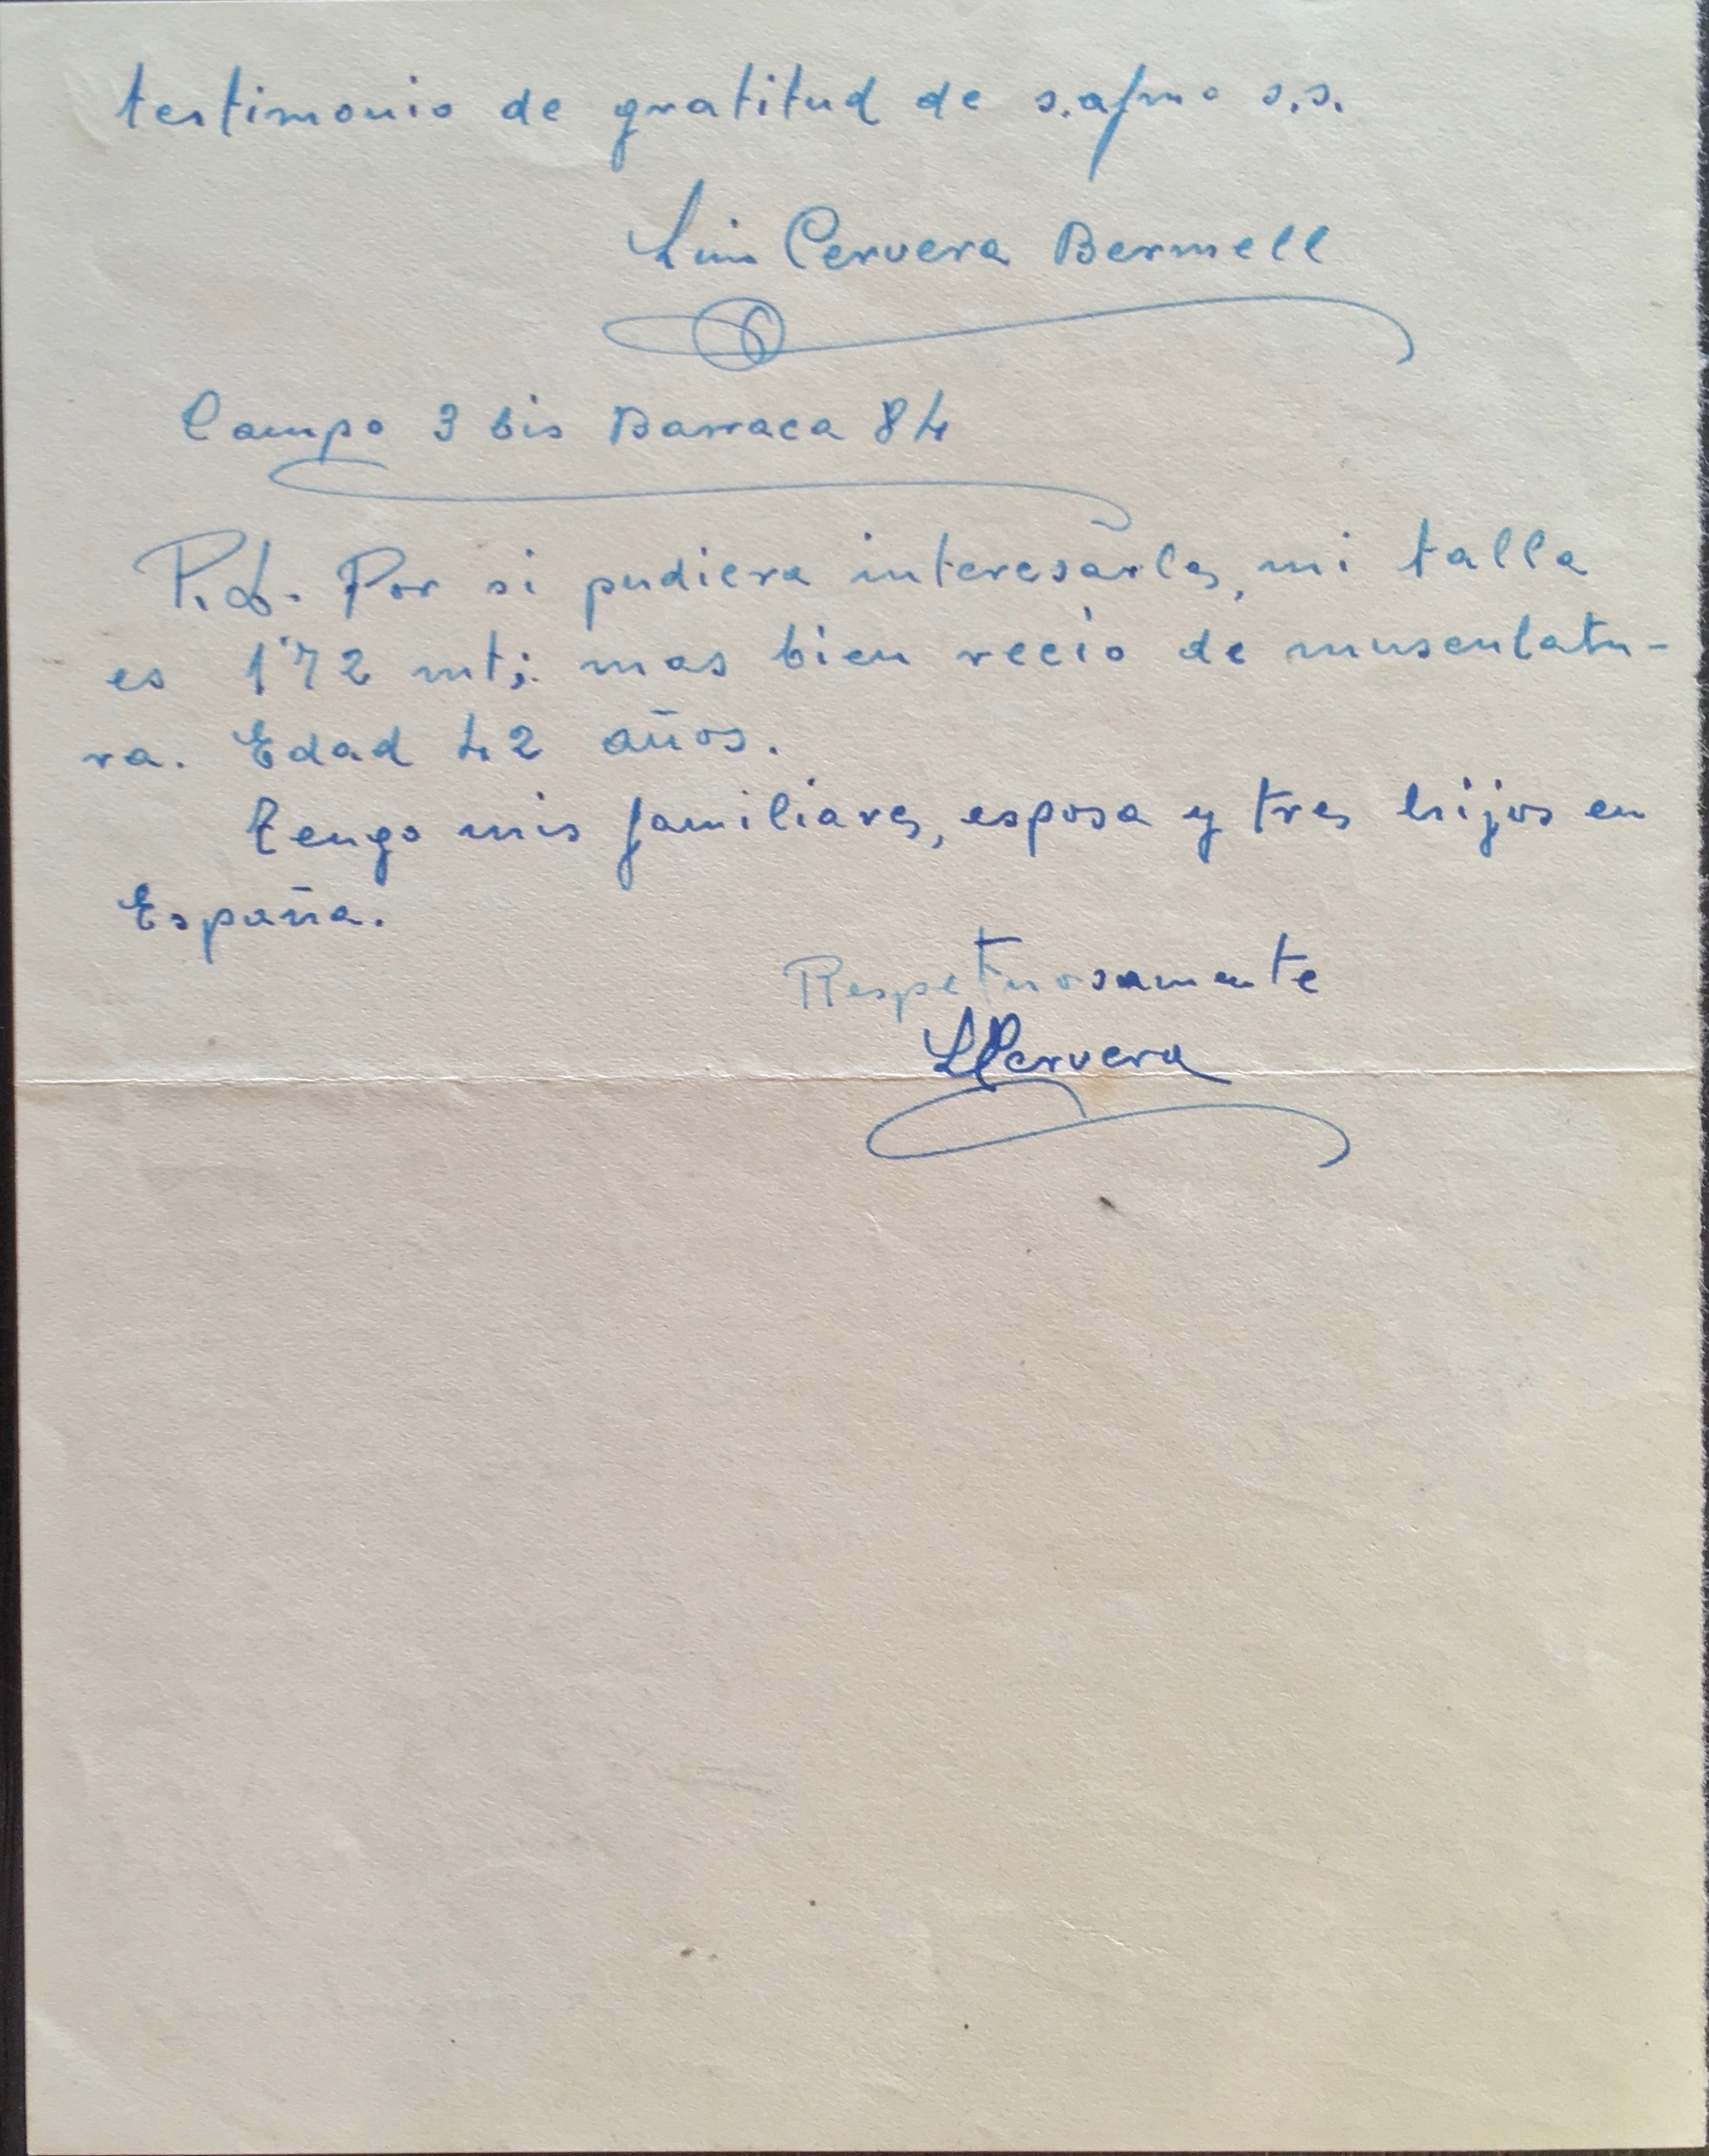 testimonio de gratitud de s. afmo s.s.
Luis Cervera Bermell
Campo 3 bis Barraca 84
P.S. Por si pudiera interesarles, mi talla
es 1'72 mt; mas bien recio de musculatu-
ra. Edad 42 años.
Tengo mis familiares, esposa y tres hijos en
España.
Respetuosamente
LCervera